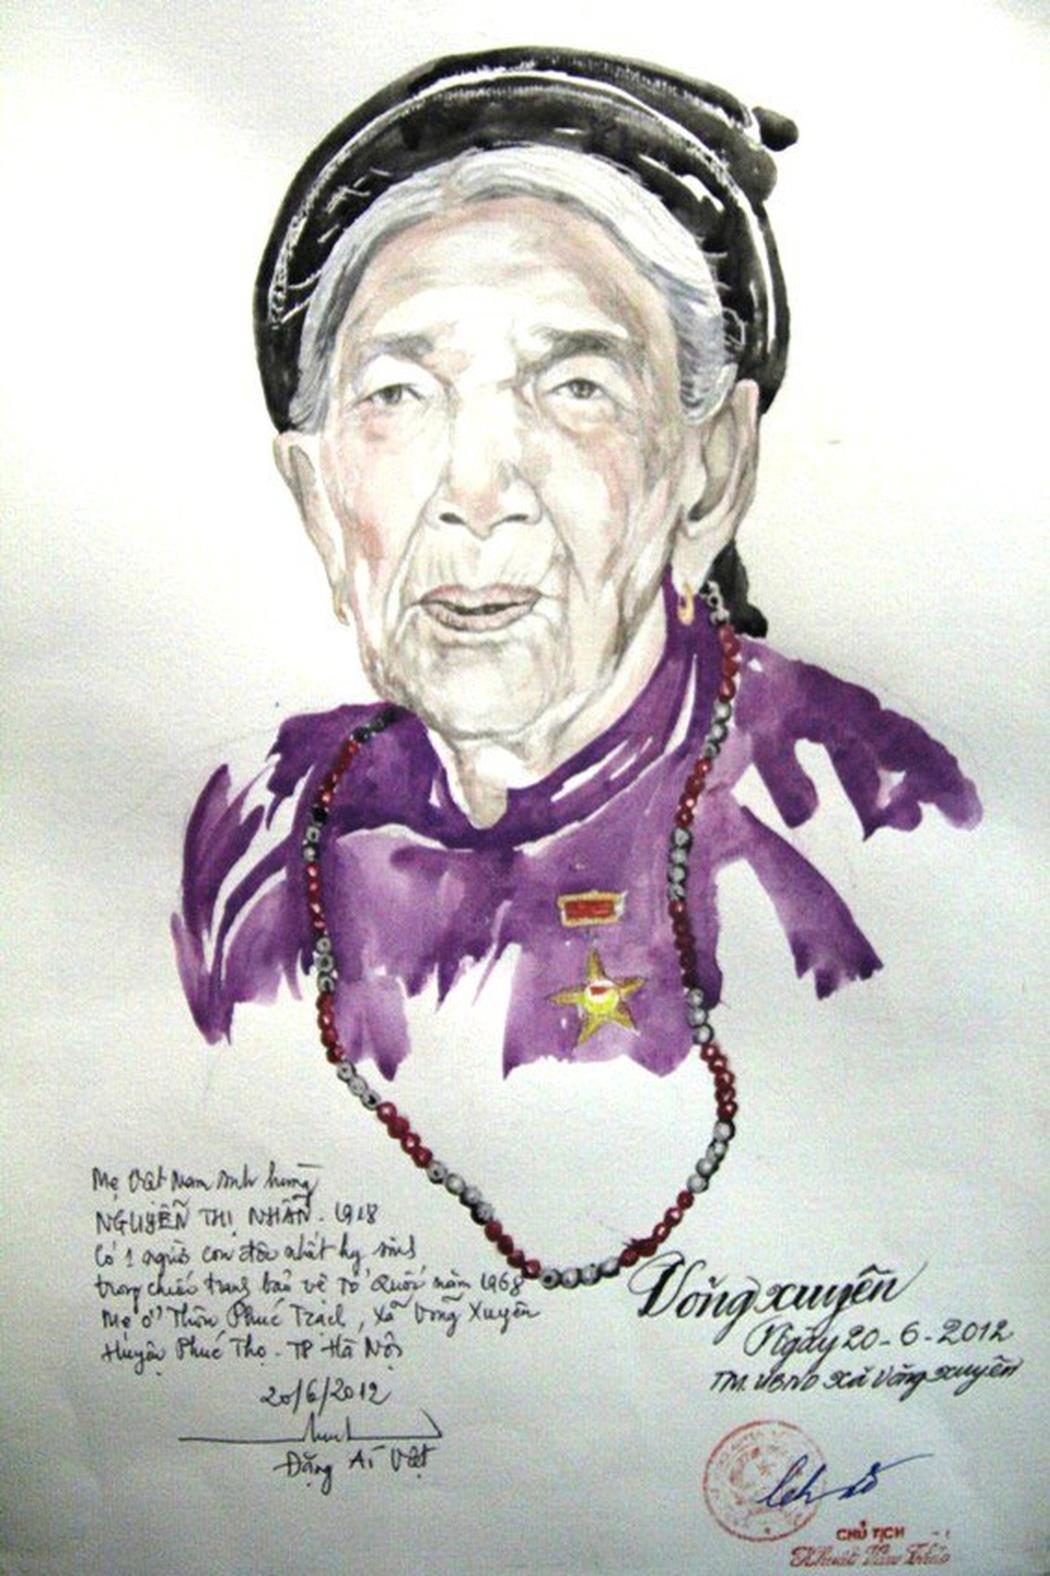 Mẹ Việt Nam anh hùng
NGUYỄN THỊ NHẪN - 1918
Có 1 người con độc nhất hy sinh
trong chiến tranh bảo vệ Tổ Quốc năm 1968
Mẹ ở Thôn Phúc Trạch, Xã Võng Xuyên
Huyện Phúc Thọ - TP Hà Nội
20/6/2012
Đặng Ái Việt
Võng xuyên
Ngày 20-6-2012
TM. UBND xã Võng xuyên
CHỦ TỊCH
Khuất Văn